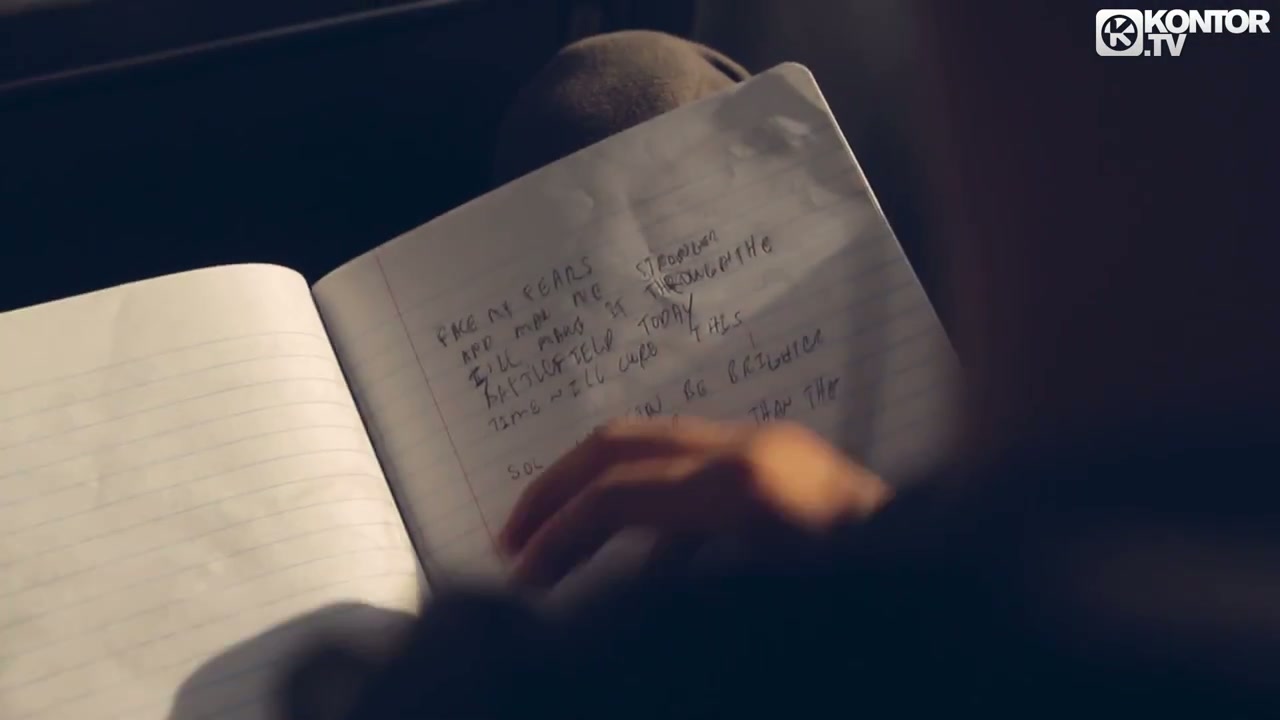 KONTOR
.TV
FACE MY FEARS
AND MAK ME STRONGER
I'LL MAKE IT THROUGH THE
BATTLEFIELD TODAY
TIME WILL CURE THIS
BE BRIGHTER
THAN THE
SOL